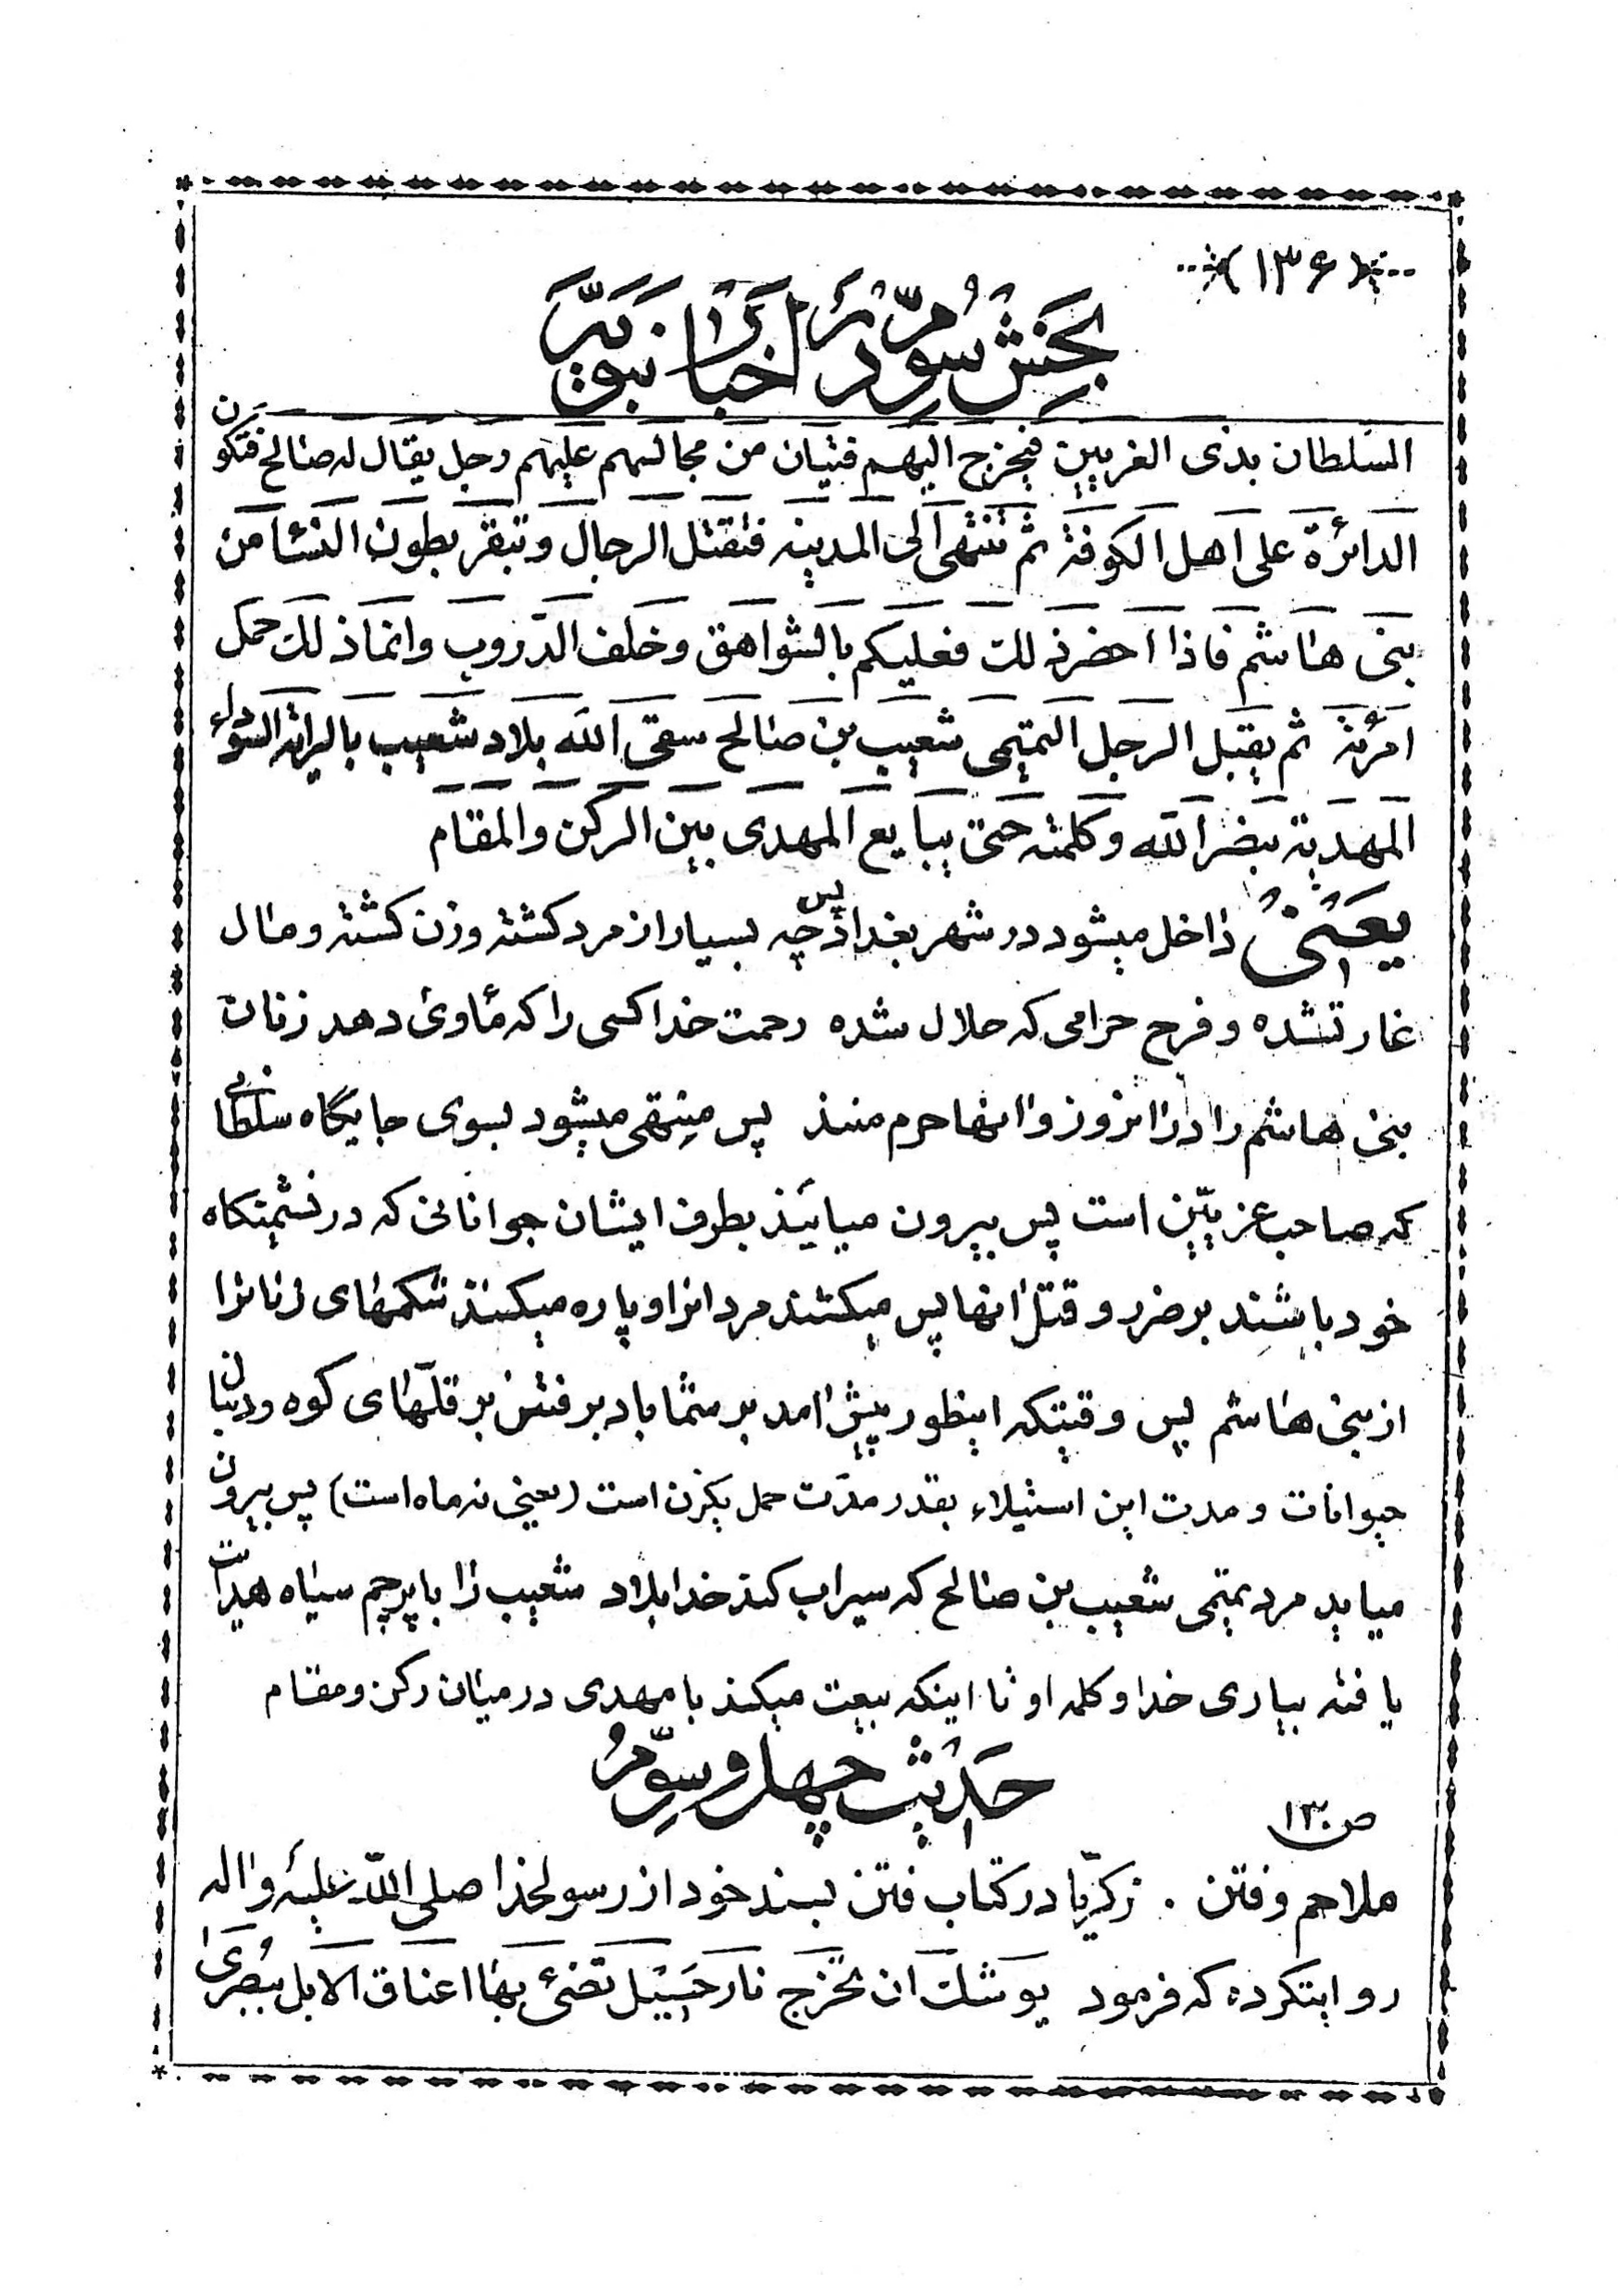 (۱۳۶)
بخش سوم در اخبار نبویه
السلطان بذی الغریین فیخرج الیهم فتیان من مجالسهم علیهم رجل یقال له صالح فتکون
الدائرة علی اهل الکوفة ثم تنتهی الی المدینه فتقتل الرجال و تبقر بطون النساء من
بنی هاشم فاذا احضر ذلک فعلیکم بالشواهق و خلف الدروب و انما ذلک حمل
امرئه ثم یقبل الرجل التمیمی شعیب بن صالح سقی الله بلاد شعیب بالرایه السوداء
المهدیة بنصر الله و کلمته حتی یبایع المهدی بین الرکن و المقام
یعنی داخل میشود در شهر بغداد پس چه بسیار از مرد کشته و زن کشته و مال
غارتشده و فرج حرامی که حلال شده رحمت خدا کسی را که مأوی دهد زنان
بنی هاشم را در انروز و انها حرم منند پس منتهی میشود بسوی جایگاه سلطانی
که صاحب غریین است پس بیرون میایند بطرف ایشان جوانانی که در نشیمنگاه
خود باشند بر ضرر و قتل انها پس میکشند مردانرا و پاره میکنند شکمهای زنانرا
از بنی هاشم پس وقتیکه اینطور پیش امد بر شما باد برفتن بر قلّهای کوه و دنبال
حیوانات و مدت این استیلاء بقدر مدت حمل یکزن است (یعنی نه ماه است) پس بیرون
میاید مرد تمیمی شعیب بن صالح که سیراب کند خدا بلاد شعیب را با پرچم سیاه هدایت
یافته بیاری خدا و کلمه او تا اینکه بیعت میکند با مهدی در میان رکن و مقام
حدیث چهل و سوم
ص۱۳۰
ملاحم و فتن . زکریا در کتاب فتن بسند خود از رسولخدا صلی الله علیه و اله
روایتکرده که فرمود یوشک ان تخرج نار حَبَسَیَل تضیئ بها اعناق الابل ببصری